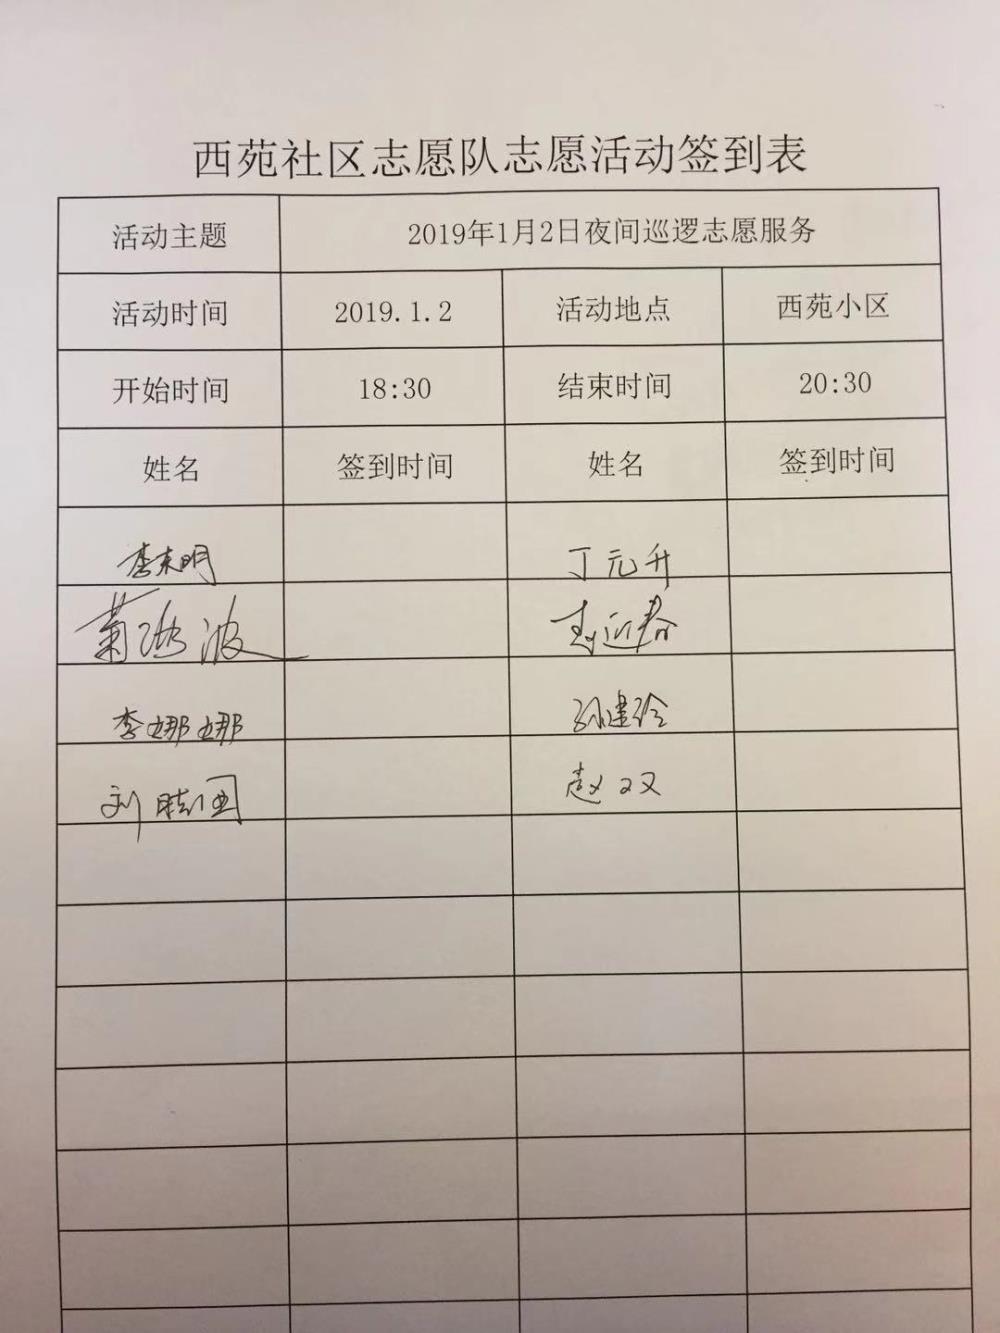 西苑社区志愿队志愿活动签到表
活动主题 2019年1月2日夜间巡逻志愿服务
活动时间 2019.1.2 活动地点 西苑小区
开始时间 18:30 结束时间 20:30
姓名 签到时间 姓名 签到时间
李来明 丁元升
波
李娜娜 孙建玲
刘 赵双